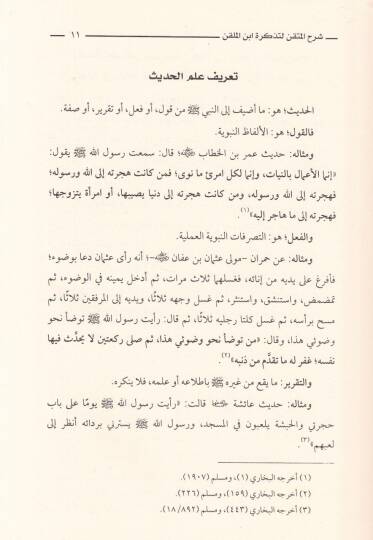 شرح المتقن لتذكرة ابن الملقن ١١
تعريف علم الحديث
الحديث؛ هو: ما أضيف إلى النبي ﷺ من قول، أو فعل، أو تقرير، أو صفة.
فالقول؛ هو: الألفاظ النبوية.
ومثاله: حديث عمر بن الخطاب ﷺ؛ قال: سمعت رسول الله ﷺ يقول:
«إنما الأعمال بالنيات، وإنما لكل امرئ ما نوى؛ فمن كانت هجرته إلى الله ورسوله؛
فهجرته إلى الله ورسوله، ومن كانت هجرته إلى دنيا يصيبها، أو امرأة يتزوجها؛
فهجرته إلى ما هاجر إليه»(١).
والفعل؛ هو: التصرفات النبوية العملية.
ومثاله: عن حمران -مولى عثمان بن عفان-؛ أنه رأى عثمان دعا بوضوء؛
فأفرغ على يديه من إنائه، فغسلهما ثلاث مرات، ثم أدخل يمينه في الوضوء، ثم
تمضمض، واستنشق، واستنثر، ثم غسل وجهه ثلاثًا، ويديه إلى المرفقين ثلاثًا، ثم
مسح برأسه، ثم غسل كلتا رجليه ثلاثًا، ثم قال: رأيت رسول الله ﷺ توضأ نحو
وضوئي هذا، وقال: «من توضأ نحو وضوئي هذا، ثم صلى ركعتين لا يحدّث فيها
نفسه؛ غفر له ما تقدّم من ذنبه»(٢).
والتقرير: ما يقع من غيره ﷺ باطلاعه أو علمه، فلا ينكره.
ومثاله: حديث عائشة قالت: «رأيت رسول الله ﷺ يومًا على باب
حجرتي والحبشة يلعبون في المسجد، ورسول الله ﷺ يسترني بردائه أنظر إلى
لعبهم»(٣).
(١) أخرجه البخاري (١)، ومسلم (١٩٠٧).
(٢) أخرجه البخاري (١٥٩)، ومسلم (٢٢٦).
(٣) أخرجه البخاري (٤٤٣)، ومسلم (١٨/٨٩٢).